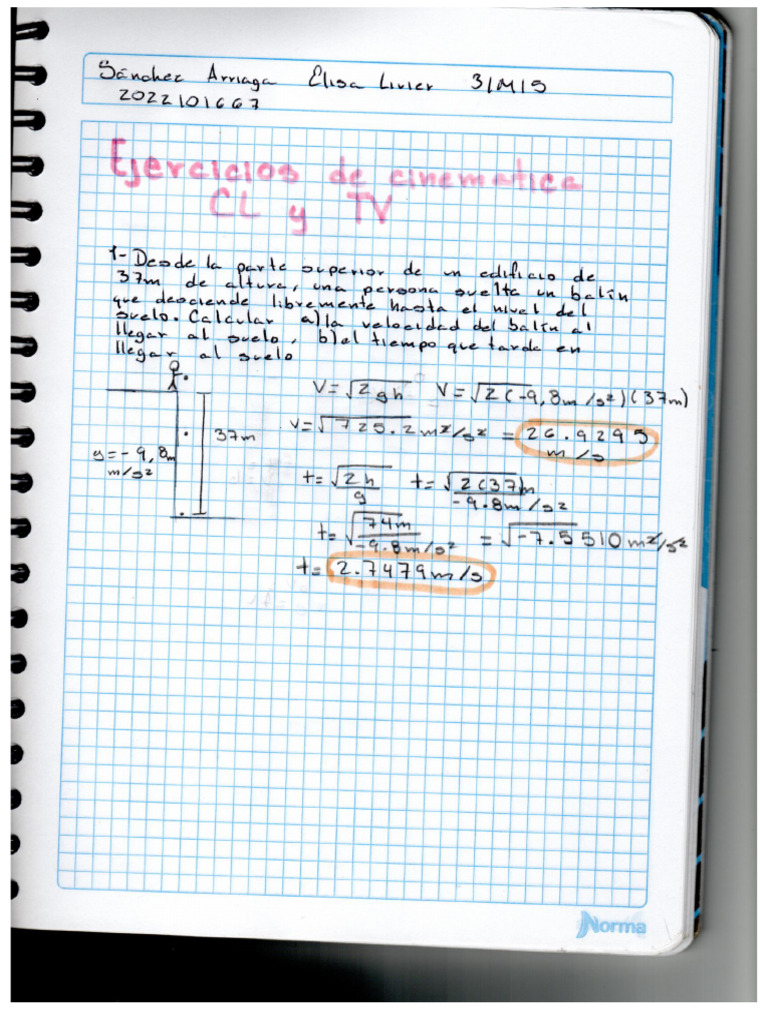 Sánchez Arriaga Elisa Livier 3/M/5
2022101667
Ejercicios de cinematica
CL y TV
1- Desde la parte superior de un edificio de
37m de altura, una persona suelta un balín
que desciende libremente hasta el nivel del
suelo. Calcular a) la velocidad del balín al
llegar al suelo, b) el tiempo que tarda en
llegar al suelo
V=√2gh V=√2(-9,8m/s²)(37m)
V=√725.2m²/s² = 26.9295
m/s
37m
y=-9,8m
m/s²
t=√2h/g t=√2(37)m/-9.8m/s²
t=√74m/-9.8m/s² =√-7.5510m²/s²
t= 2.7479m/s
Norma